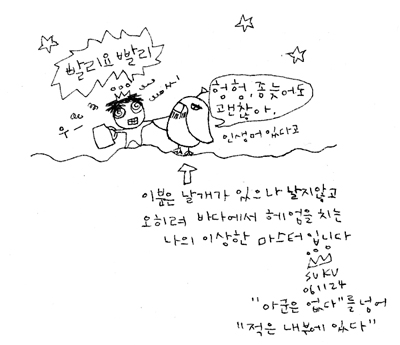 빨리요 빨리
우-
씨
험험, 좀늦어도
괜찮아.
인생머있다고
이분은 날개가 있으나 날지않고
오히려 바다에서 헤엄을 치는
나의 이상한 마스터입니다
SUKU
061124
"아군은 없다"를 넘어
"적은 내부에 있다"